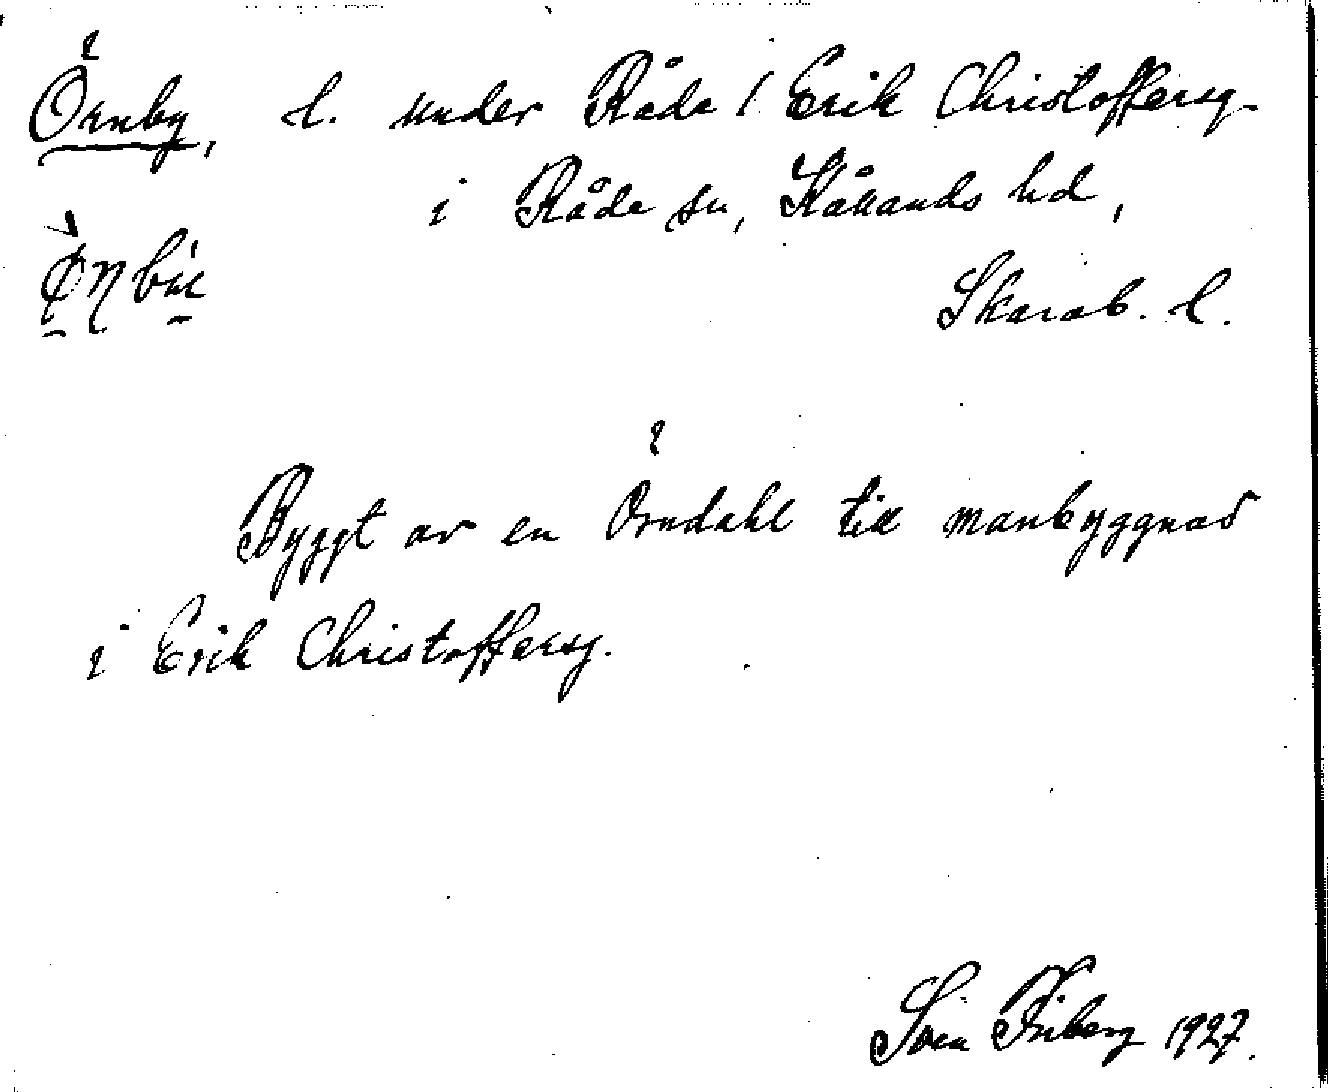 Örnby, l. under Råda / Erik Christoffersg.
i Råda sn, Kållands hd,
Skarab. l.
Byggt av en Örndahl till manbyggnad
i Erik Christoffersg.
Sven Friberg 1927.